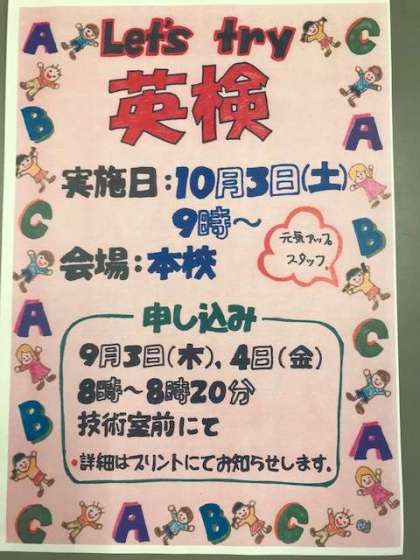 Let's try
英検
実施日：10月3日(土)
9時～
会場：本校
元気アップ
スタッフ
申し込み
9月3日(木)、4日(金)
8時～8時20分
技術室前にて
・詳細はプリントにてお知らせします。
A
C
B
A
C
B
A
C
B
A
C
A
B
C
C